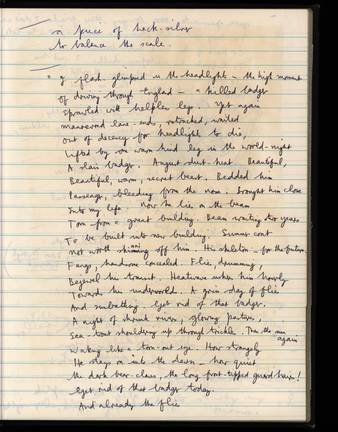 a piece of hack-silver
to balance the scale.
glimpsed in the headlights – the high moment
Of driving through England – a killed badger
Sprawled with helpless legs. Yet again
Manoeuvred lane-ends, retracked, waited
Out of decency for headlights to die,
Lifted by one warm hind leg in the world-night
A slain badger. August dust-heat. Beautiful,
Beautiful, warm, secret beast. Bedded him
Passenger, bleeding from the nose. Brought him close
Into my life. Now he lies on the beam
Torn from a great building. Beam waiting two years
To be built into new building. Summer coat
Not worth skinning off him. His skeleton – for the future.
Fangs, handsome concealed. Flies, drumming,
Bejewel his transit. Heatwave ushers him hourly
Towards his underworlds. A grim day of flies
And sunbathing. Get rid of that badger.
A night of shrunk rivers, glowing pastures,
Sea-trout shouldering up through trickles. Then the sun again
Waking like a torn-out eye. How strangely
He stays on into the dawn – how quiet
The dark bear-claws, the long frost-tipped guard hairs!
Get rid of that badger today.
And already the flies